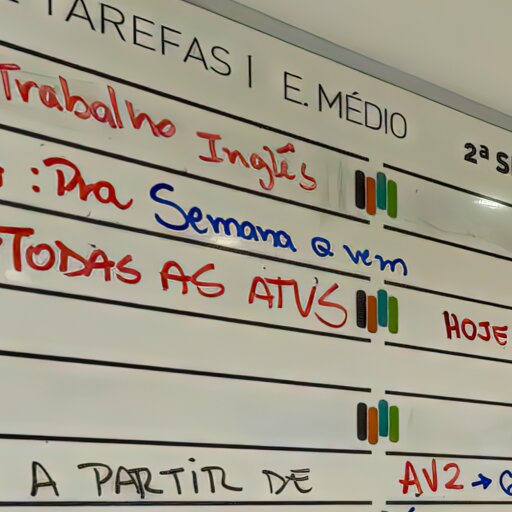 TAREFAS | E. MÉDIO
2ª
Trabalho Inglês
: Pra Semana q vem
TODAS AS ATVS
HOJE
A PARTIR DE
AV2 →